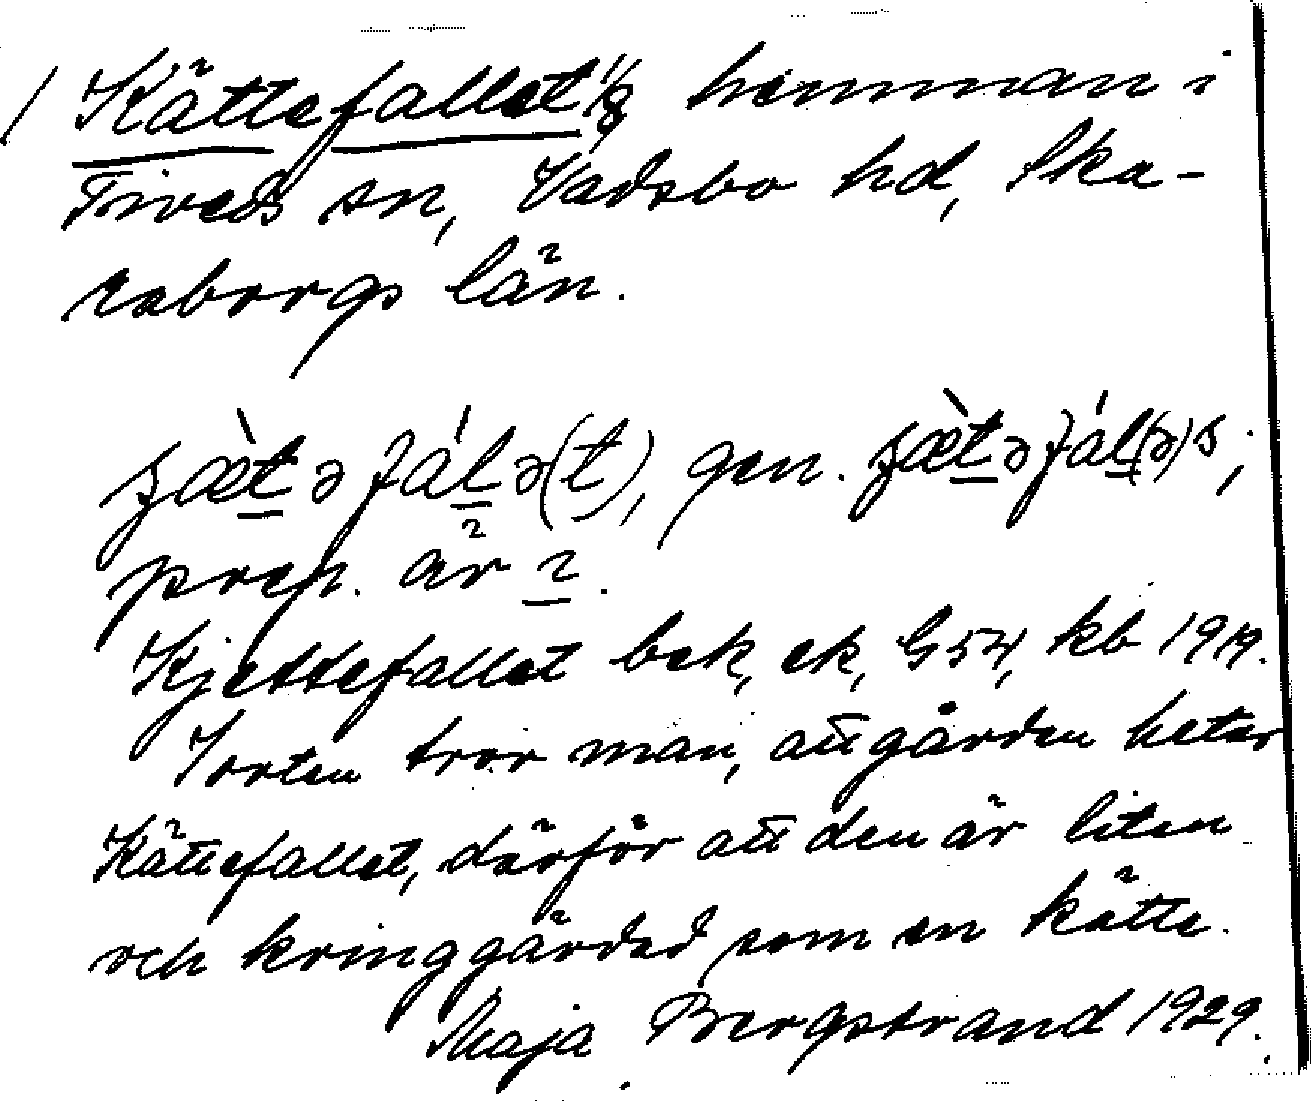 / Kättefallet 1/8 hemman i
Tiveds sn, Vadsbo hd, Ska-
raborgs län.
prep. är i.
Kjettefallet bek, ek, G54, kb 1919.
I orten tror man, att gården heter
Kättefallet, därför att den är liten
och kringgärdad som en kätte.
Maja Bergstrand 1929.